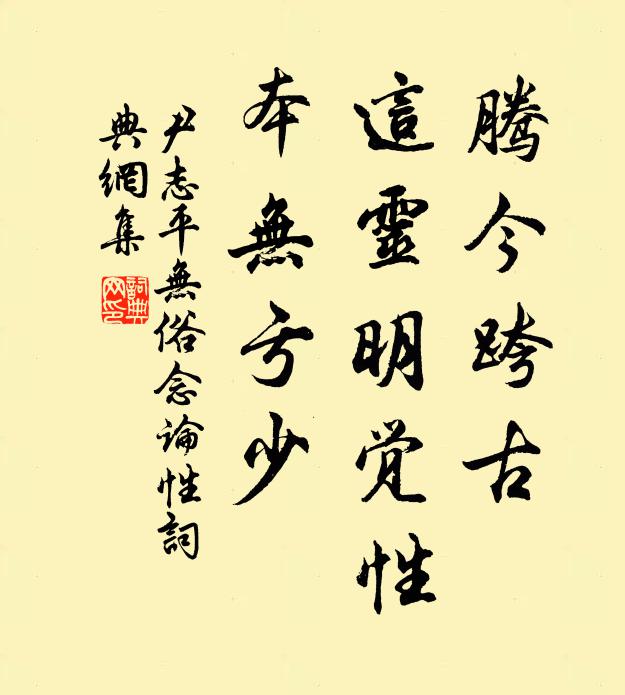 腾今跨古
這靈明觉性
本無亏少
尹志平無俗念論性詞
典網集
詞典网印